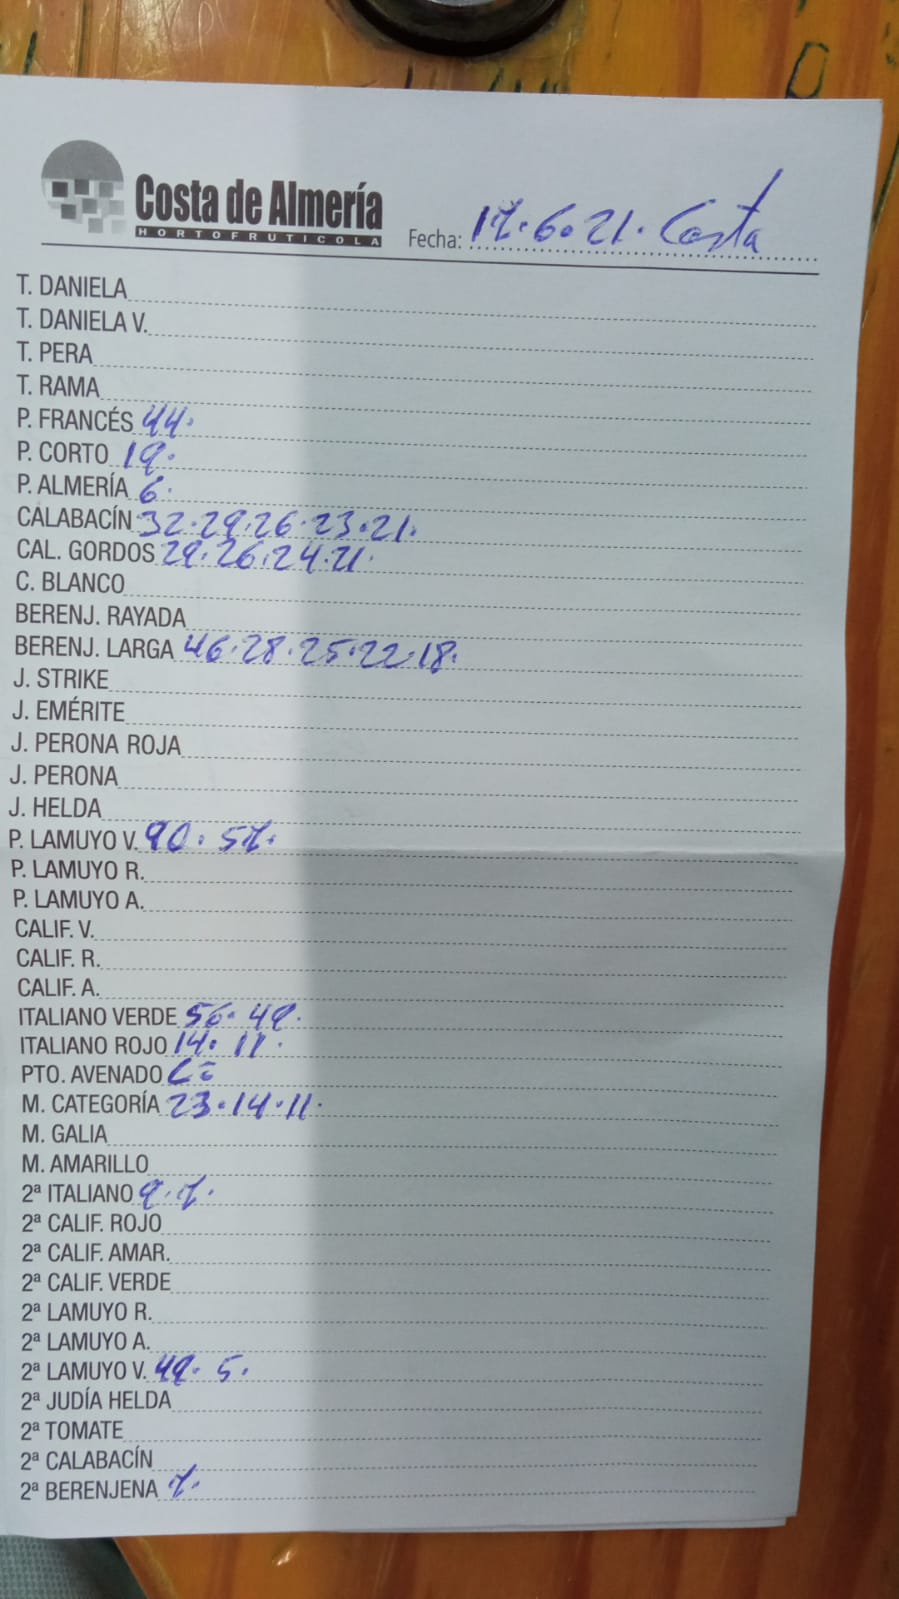 Costa de Almería
HORTOFRUTICOLA
Fecha: 17.6.21. Costa
T. DANIELA
T. DANIELA V.
T. PERA
T. RAMA
P. FRANCÉS 44.
P. CORTO 19.
P. ALMERÍA 6.
CALABACÍN 32.29.26.23.21.
CAL. GORDOS 29.26.24.21.
C. BLANCO
BERENJ. RAYADA
BERENJ. LARGA 46.28.25.22.18.
J. STRIKE
J. EMÉRITE
J. PERONA ROJA
J. PERONA
J. HELDA
P. LAMUYO V. 90.57.
P. LAMUYO R.
P. LAMUYO A.
CALIF. V.
CALIF. R.
CALIF. A.
ITALIANO VERDE 56.49.
ITALIANO ROJO 14.11.
PTO. AVENADO
M. CATEGORÍA 23.14.11.
M. GALIA
M. AMARILLO
2ª ITALIANO 9.7.
2ª CALIF. ROJO
2ª CALIF. AMAR.
2ª CALIF. VERDE
2ª LAMUYO R.
2ª LAMUYO A.
2ª LAMUYO V. 49.5.
2ª JUDÍA HELDA
2ª TOMATE
2ª CALABACÍN
2ª BERENJENA 7.